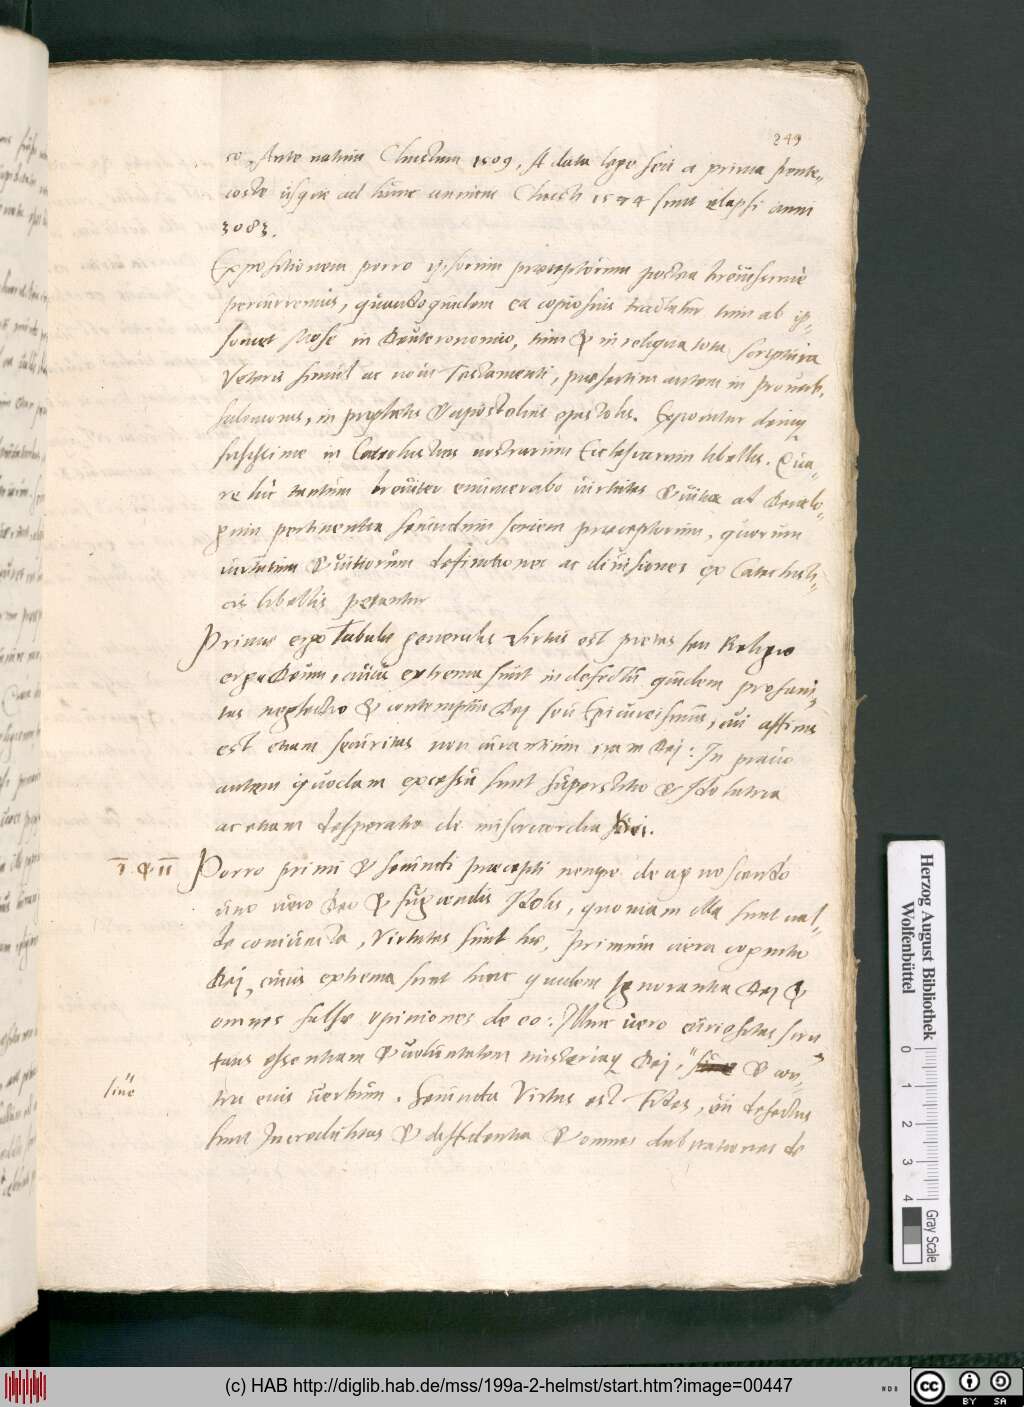 249
so. Ante natum Christum 1509. A data lege seu a prima pente„
coste usque ad hunc annum Christi 1574 sunt elapsi anni
3083.
Expositionem porro ipsorum præceptorum postea breuissime
percurremus, quandoquidem ea copiosius tractatur tum ab ip„
somet Mose in Deuteronomio, tum & in reliqua tota scriptura
Veteris simul ac noui Testamenti, præsertim autem in prouerb.
Salomonis, in prophetis & apostolicis epistolis. Exponitur deniq
fusissime in Catechisticis nostrarum Ecclesiarum libellis. Qua„
re hic tantum breuiter enumerabo uirtutes & uitia ad Decalo„
gum pertinentia secundum seriem præceptorum, quorum
uirtutum & uitiorum definitiones ac diuisiones ex Catechisti„
cis libellis petantur
Primæ ergo Tabulæ generalis virtus est pietas seu Religio
erga Deum, cuius extrema sunt in defectu quidem profani„
tas neglectio & contemptus Dej seu Epicureismus, cui affinis
est etiam securitas non curantium iram Dej: In prauo
autem quodam excessu sunt superstitio & Idolatria
ac etiam desperatio de misericordia Dei.
I & II Porro primi & secundi præcepti nempe de agnoscendo
uno uero Deo & fugiendis Idolis, quoniam illa sunt ual„
de coniuncta, Virtutes sunt hæ, primum uera cognitio
Dej, cuius extrema sunt hinc quidem Ignorantia Dej &
omnes falsæ opiniones de eo: Illinc uero curiositas scru„
tans essentiam & uoluntatem misteriaq Dej, " & con„
sine
tra eius uerbum. Secunda Virtus est Fides, cui defectus
sunt Incredulitas & diffidentia & omnes dubitationes de
Herzog August Bibliothek
Wolfenbüttel
0 1 2 3 4
Gray Scale
(c) HAB http://diglib.hab.de/mss/199a-2-helmst/start.htm?image=00447
cc BY SA